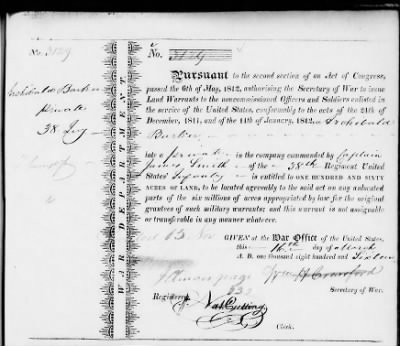 No. 3179
No. 3179
Archibald Barker
Private
38 Inf
WAR DEPARTMENT.
Pursuant to the second section of an Act of Congress,
passed the 6th of May, 1812, authorising the Secretary of War to issue
Land Warrants to the uncommissioned Officers and Soldiers enlisted in
the service of the United States, conformably to the acts of the 24th of
December, 1811, and of the 11th of January, 1812, Archibald
Barker
late a private in the company commanded by Captain
James Smith of the 38th Regiment United
States' Infantry is entitled to ONE HUNDRED AND SIXTY
ACRES OF LAND, to be located agreeably to the said act on any unlocated
parts of the six millions of acres appropriated by law for the original
grantees of such military warrants; and this warrant is not assignable
or transferable in any manner whatever.
GIVEN at the War Office of the United States,
this 16th day of March
A. D. one thousand eight hundred and Sixteen
Wm H Crawford
Secretary of War.
Registered,
Nat Cutting
Clerk.